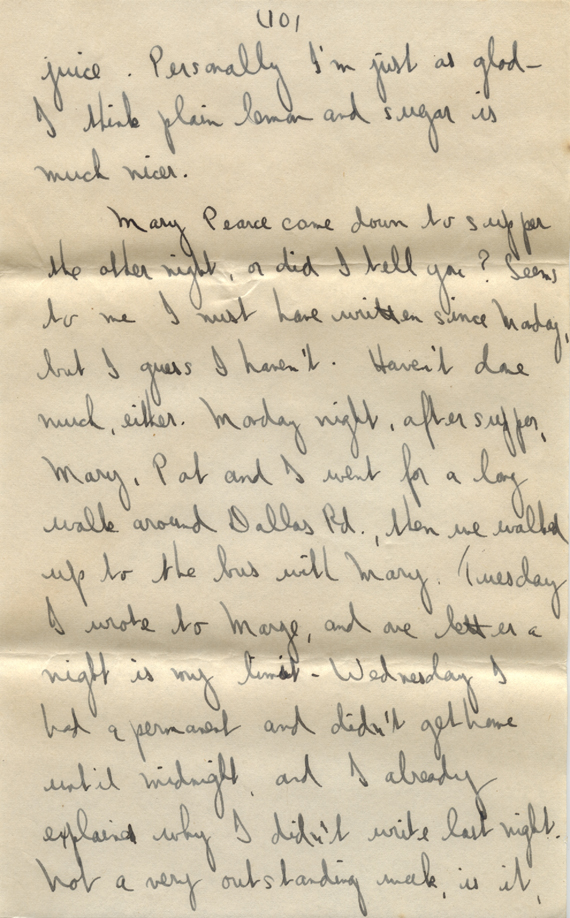 (10)
juice. Personally I'm just as glad -
I think plain lemon and sugar is
much nicer.
Mary Pearce came down to supper
the other night, or did I tell you? Seems
to me I must have written since Monday,
but I guess I haven't. Haven't done
much, either. Monday night, after supper,
Mary, Pat and I went for a long
walk around Dallas Rd., then we walked
up to the bus with Mary. Tuesday
I wrote to Marge, and one letter a
night is my limit - Wednesday I
had a permanent and didn't get home
until midnight, and I already
explained why I didn't write last night.
Not a very outstanding week, is it,